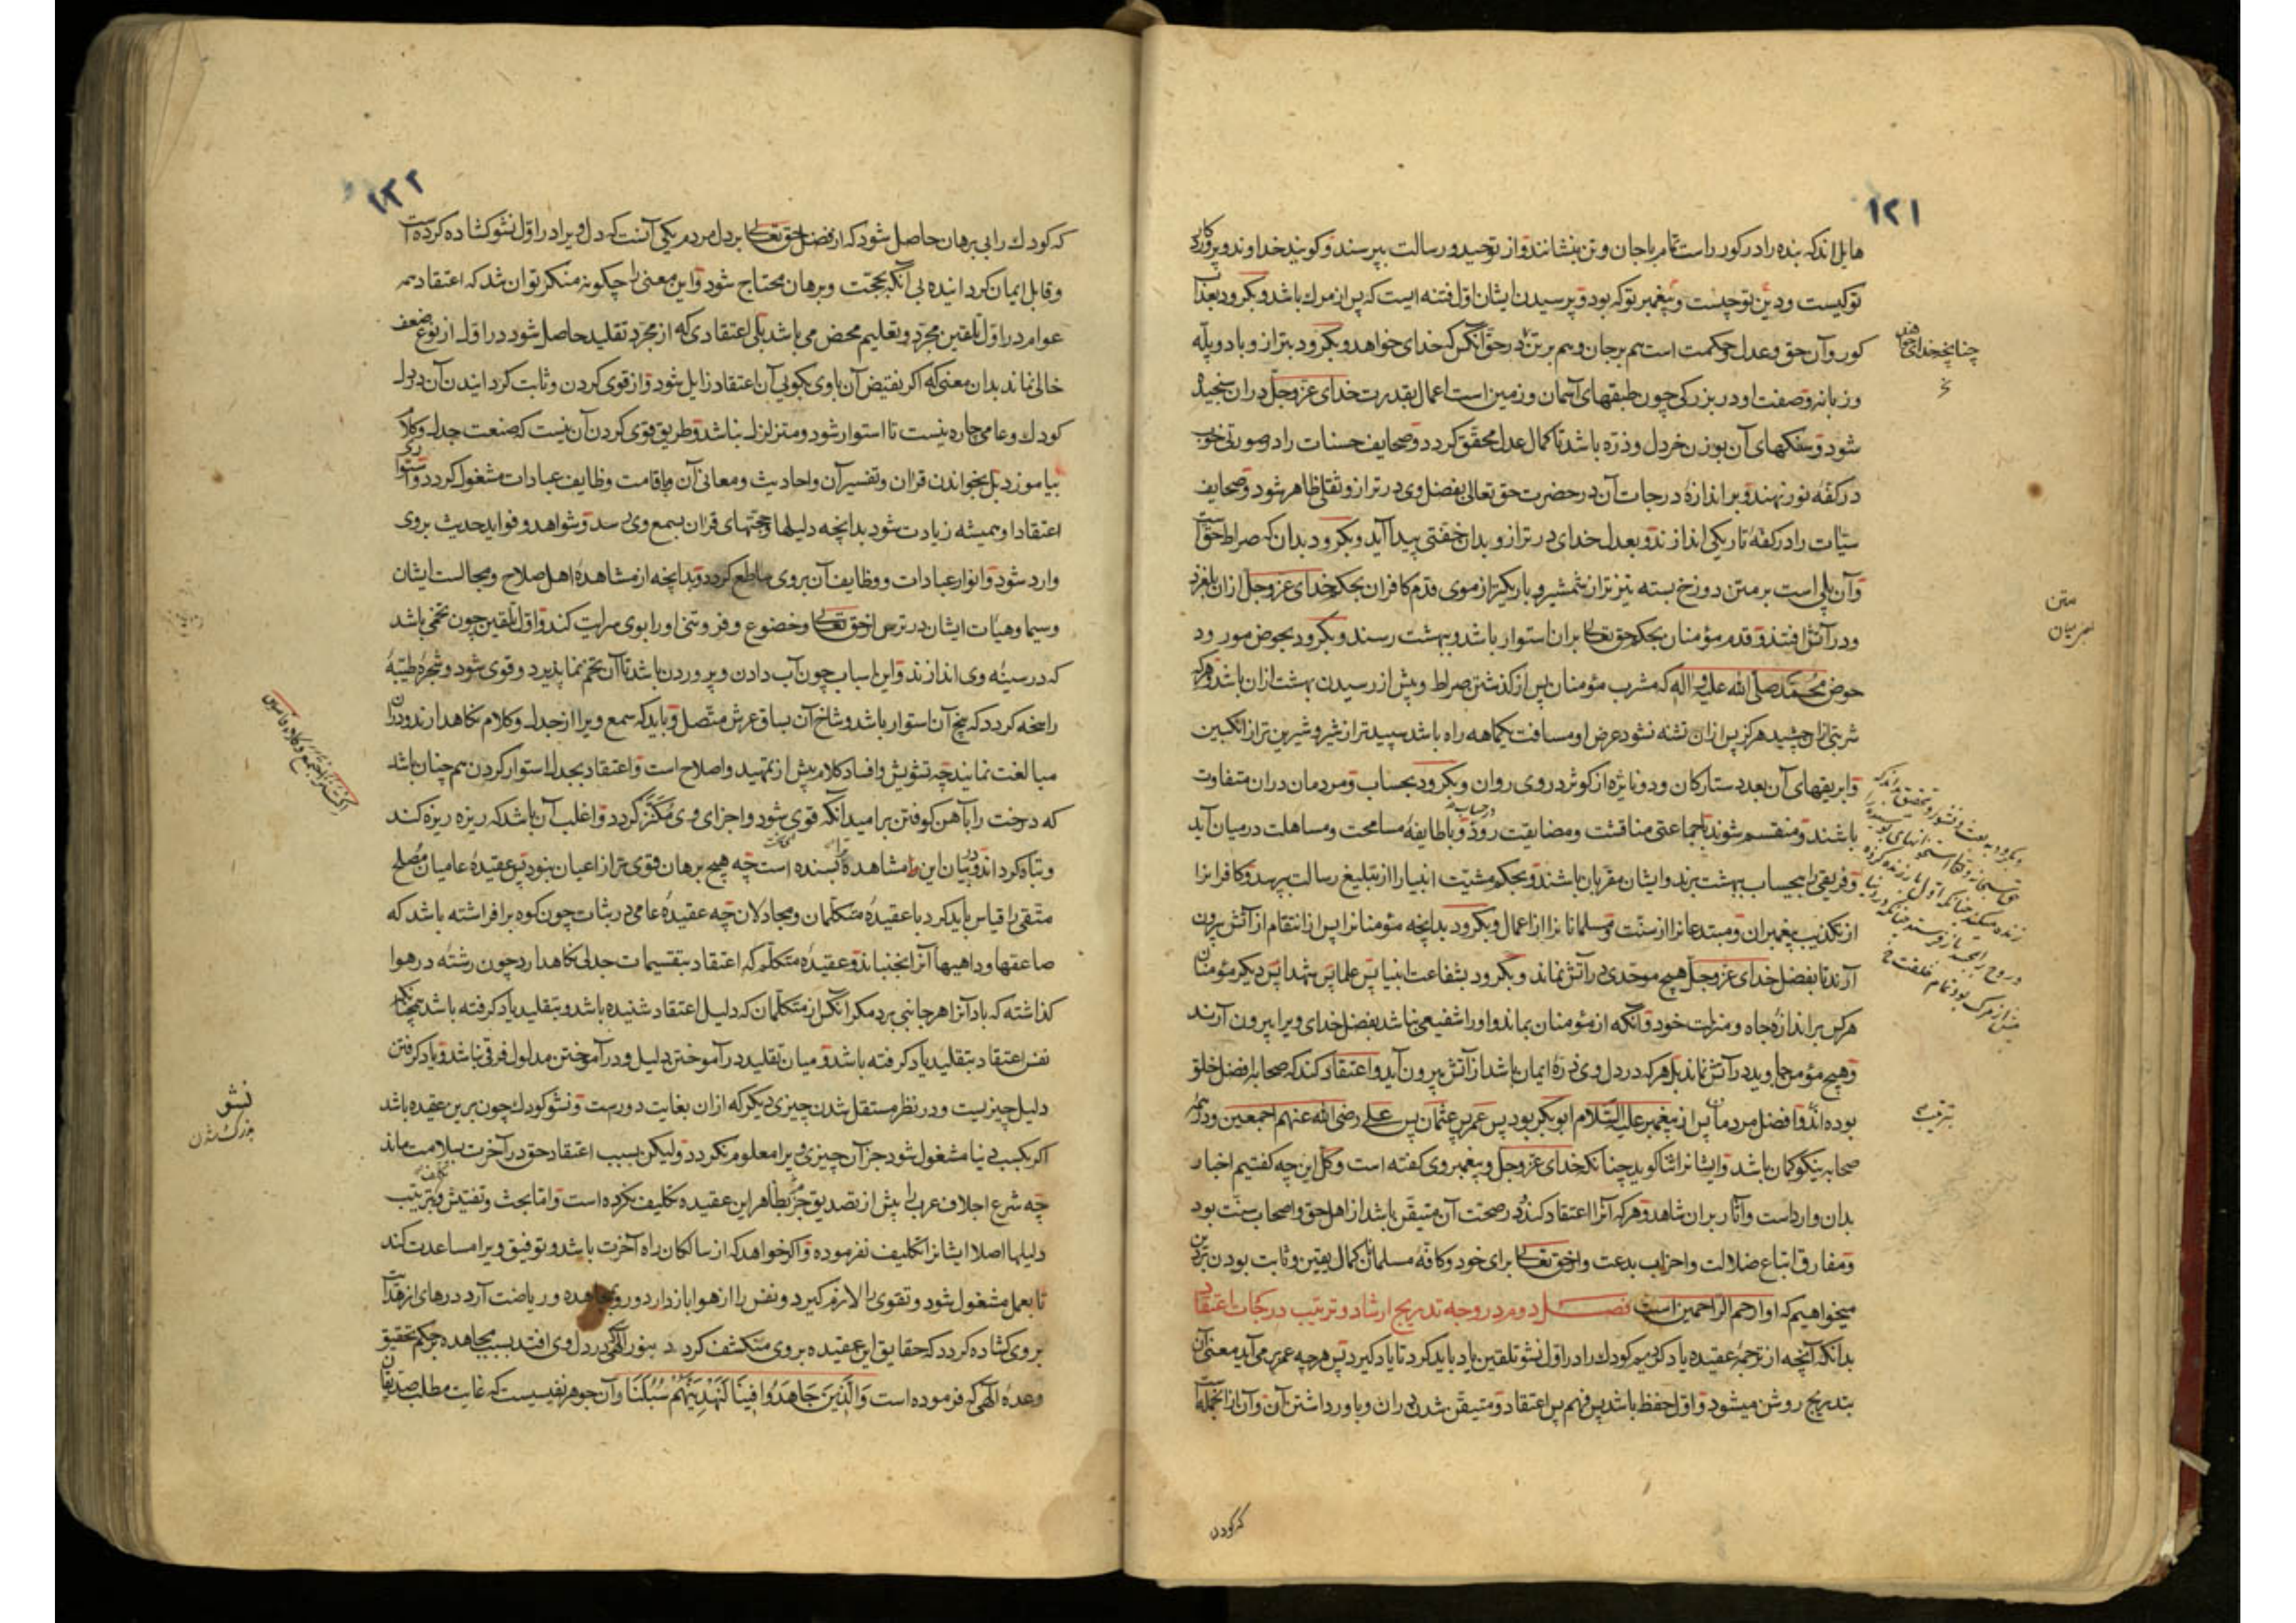 ۱۲۱
هایل اند که بنده را در کور راست تمام با جان و تن بنشانند و از توحید و رسالت بپرسند و کویند خداوند و پروردکار
تو کیست و دین تو چیست و پیغمبر تو که بود و پرسیدن ایشان اول فتنه ایست که پس از مرك باشد و بکرود بعذاب
کور و آن حق و عدل و حکمت است هم بر جان و هم بر تن در حق آنکس که خدای خواهد و بکرود بترازو با دو پله
و زبانه و صفت او در بزرکی چون طبقهای آسمان و زمین است اعمال بقدرت خدای عزوجل دران سنجیده
شود و سنکهای آن بوزن خردل و ذره باشد تا کمال عدل محقق کردد و صحایف حسنات را در صورتی خوب
در کفه نور نهند و بر اندازه درجات آن در حضرت حق تعالی بفضل وی در ترازو ثقلی ظاهر شود و صحایف
سیآت را در کفه تاریکی اندازند و بعدل خدای در ترازو بدان خفتی پیدا آید و بکرود بدان که صراط حق است
و آن پلی است بر متن دوزخ بسته تیزتر از شمشیر و باریکتر از موی قدم کافران بحکم خدای عزوجل ازان بلغزد
و در آتش افتند و قدم مؤمنان بحکم حق تعالی بران استوار باشد و ببهشت رسند و بکرود بحوض مورود
حوض محمد صلی الله علیه و اله که مشرب مؤمنان پس از کذشتن صراط و پیش از رسیدن بهشت ازان باشد و هرکه
شربتی ازان چشید هرکز پس ازان تشنه نشود عرض او مسافت یکماهه راه باشد سپیدتر از شیر و شیرین تر از انکبین
و ابریقهای آن بعدد ستارکان و دو ناژه از کوثر در وی روان و بکرود بحساب و مردمان دران متفاوت
باشند و منقسم شوند با جماعتی مناقشت و مضایقت رود و با طایفه مسامحت و مساهلت در میان آید
و فریقی را بیحساب ببهشت برند و ایشان مقربان باشند و بحکم مشیت انبیا را از تبلیغ رسالت بپرسد و کافرانرا
از تکذیب پیغمبران و مبتدعانرا از سنت و مسلمانانرا از اعمال و بکرود بدانچه مؤمنانرا پس از انتقام از آتش بیرون
آرند تا بفضل خدای عزوجل هیچ موحدی در آتش نماند و بکرود بشفاعت انبیا پس علما پس شهدا پس دیکر مؤمنان
هر کس بر اندازه جاه و منزلت خود و آنکه از مؤمنان بماند و او را شفیعی نباشد بفضل خدای ویرا بیرون آرند
و هیچ مؤمن جاوید در آتش نماند بل هرکه در دل وی ذره ایمان باشد از آتش بیرون آید و اعتقاد کند که صحابه افضل خلق
بوده اند و افضل مردمان پس از پیغمبر علیه السلام ابوبکر بود پس عمر پس عثمان پس علی رضی الله عنهم اجمعین و در همه
صحابه نیکو کمان باشد و ایشانرا ثنا کوید چنانکه خدای عزوجل و پیغمبر وی کفته است و کل این چه کفتیم اخبار
بدان وارداست و آثار بران شاهد و هرکه آنرا اعتقاد کند و در صحت آن متیقن باشد از اهل حق و اصحاب سنت بود
و مفارق اتباع ضلالت و احزاب بدعت و از حق تعالی برای خود و کافه مسلمانان کمال یقین و ثابت بودن بر دین
میخواهیم که او ارحم الراحمین است فصل دوم در وجه تدریج ارشاد و ترتیب درجات اعتقاد
بدانکه آنچه از ترجمه عقیده یاد کردیم کودك را در اول نشو تلقین باید کرد تا یاد کیرد پس هرچه عمر برمی آید معنی آن
بتدریج روشن میشود و اول حفظ باشد پس فهم پس اعتقاد و متیقن شدن دران و باور داشتن آن و آن از آنجمله است
چنانچه خدای خواهد
متن
ترتیب
که کودن
۱۲۲
که کودك را بی برهان حاصل شود که از فضل حق تعالی بر دل مردم یکی آنست که دل ویرا در اول نشو کشاده کرده است
و قابل ایمان کردانیده بی آنکه بحجت و برهان محتاج شود و این معنی را چکونه منکر توان شد که اعتقاد همه
عوام در اول تلقین مجرد و تعلیم محض می باشد بلی اعتقادی که از مجرد تقلید حاصل شود در اول از نوع ضعف
خالی نماند بدان معنی که اکر نقیض آن باوی بکویی آن اعتقاد زایل شود و از قوی کردن و ثابت کردانیدن آن در دل
کودك و عامی چاره نیست تا استوار شود و متزلزل نباشد و طریق قوی کردن آن نیست که صنعت جدل و کلام
بیاموزد بل بخواندن قران و تفسیر آن و احادیث و معانی آن و باقامت وظایف عبادات مشغول کردد و استواری
اعتقاد او همیشه زیادت شود بدانچه دلیلها و حجتهای قران بسمع وی رسد و شواهد و فواید حدیث بروی
وارد شود و انوار عبادات و وظایف آن بروی ساطع کردد و بدانچه از مشاهده اهل صلاح و مجالست ایشان
و سیما و هیآت ایشان در ترس از حق تعالی و خضوع و فروتنی او را بوی سرایت کند و اول تلقین چون تخمی باشد
که در سینه وی اندازند و این اسباب چون آب دادن و پروردن باشد تا آن تخم نما پذیرد و قوی شود و شجره طیبه
راسخه کردد که بیخ آن استوار باشد و شاخ آن بساق عرش متصل و باید که سمع ویرا از جدل و کلام نکاهدارند و دران
مبالغت نمایند چه تشویش و افساد کلام بیش از تمهید و اصلاح است و اعتقاد بجدل استوار کردن هم چنان باشد
که درخت را بآهن کوفتن بر امید آنکه قوی شود و اجزای وی مکتنز کردد و اغلب آن باشد که ریزه ریزه کند
و تباه کرداند و در بیان این مشاهده بسنده است چه هیچ برهان قوی تر از اعیان نبود پس عقیده عامیان مصلح
متقی را قیاس باید کرد با عقیده متکلمان و مجادلان چه عقیده عامی در ثبات چون کوه برافراشته باشد که
صاعقها و داهیها آنرا نجنباند و عقیده متکلم که اعتقاد بتقسیمات جدلی نکاهدارد چون رشته در هوا
کذاشته که باد آنرا هر جانبی برد مکر آنکس از متکلمان که دلیل اعتقاد شنیده باشد و بتقلید یاد کرفته باشد همچنانکه
نفس اعتقاد بتقلید یاد کرفته باشد و میان تقلید در آموختن دلیل و در آموختن مدلول فرقی نباشد و یاد کرفتن
دلیل چیزیست و در نظر مستقل شدن چیزی دیکر که ازان بغایت دورست و نشو کودك چون برین عقیده باشد
اکر بکسب دنیا مشغول شود جز آن چیزی ویرا معلوم نکردد ولیکن بسبب اعتقاد حق در آخرت بسلامت ماند
چه شرع اجلاف عرب را بیش از تصدیق جزم بظاهر این عقیده تکلیف نکرده است و اما بحث و تفتیش و ترتیب
دلیلها اصلا ایشانرا تکلیف نفرموده و اکر خواهد که از سالکان راه آخرت باشد و توفیق ویرا مساعدت کند
تا بعمل مشغول شود و تقوی را لازم کیرد و نفس را از هوا باز دارد و روی بمجاهده و ریاضت آرد درهای از هدایت
بروی کشاده کردد که حقایق این عقیده بروی منکشف کردد بنور الهی که در دل وی افتد بسبب مجاهده بر حکم تحقیق
وعده الهی که فرموده است وَالَّذِینَ جَاهَدُوا فِینَا لَنَهْدِیَنَّهُمْ سُبُلَنَا و آن جوهر نفیسیست که غایت مطلب صدیقان
نشو
بزرک شدن